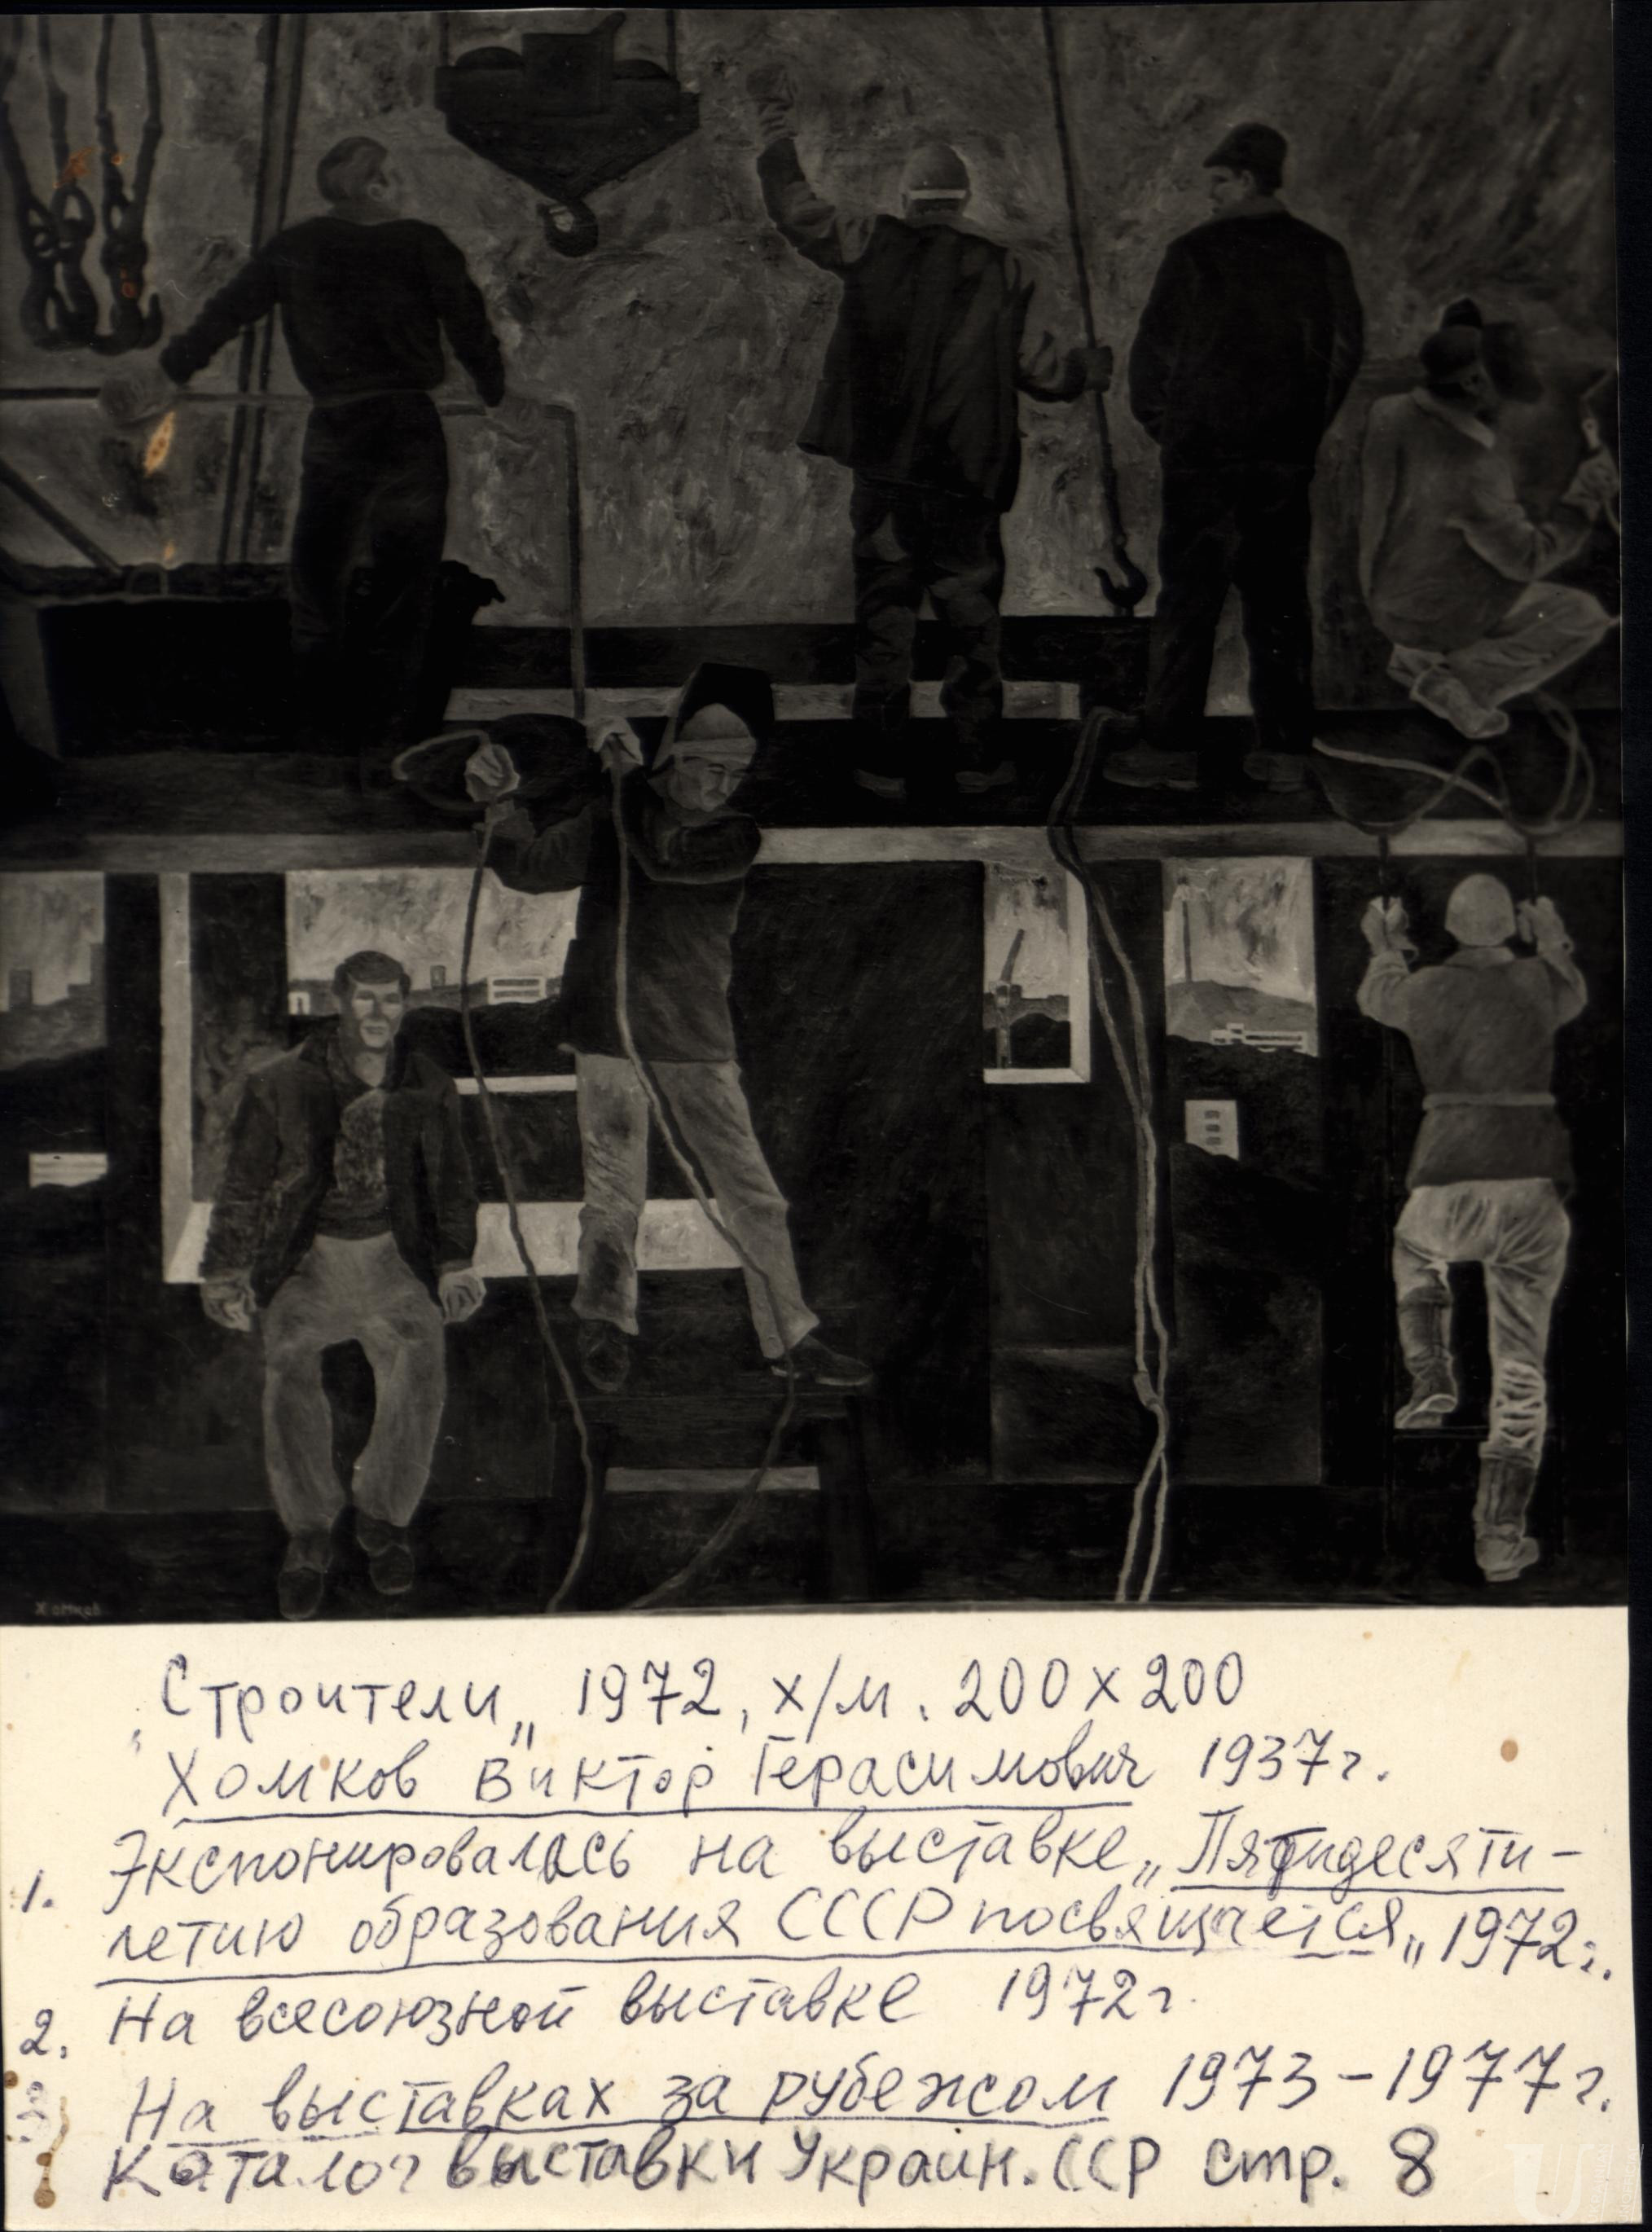 Хомков
„Строители„ 1972, х/м. 200х200
Хомков Виктор Герасимович 1937г.
1. Экспонировалась на выставке „Пятидесяти-
летию образования СССР посвящается„ 1972г.
2. На всесоюзной выставке 1972г.
На выставках за рубежом 1973-1977г.
Каталог выставки Украин.ССР стр. 8